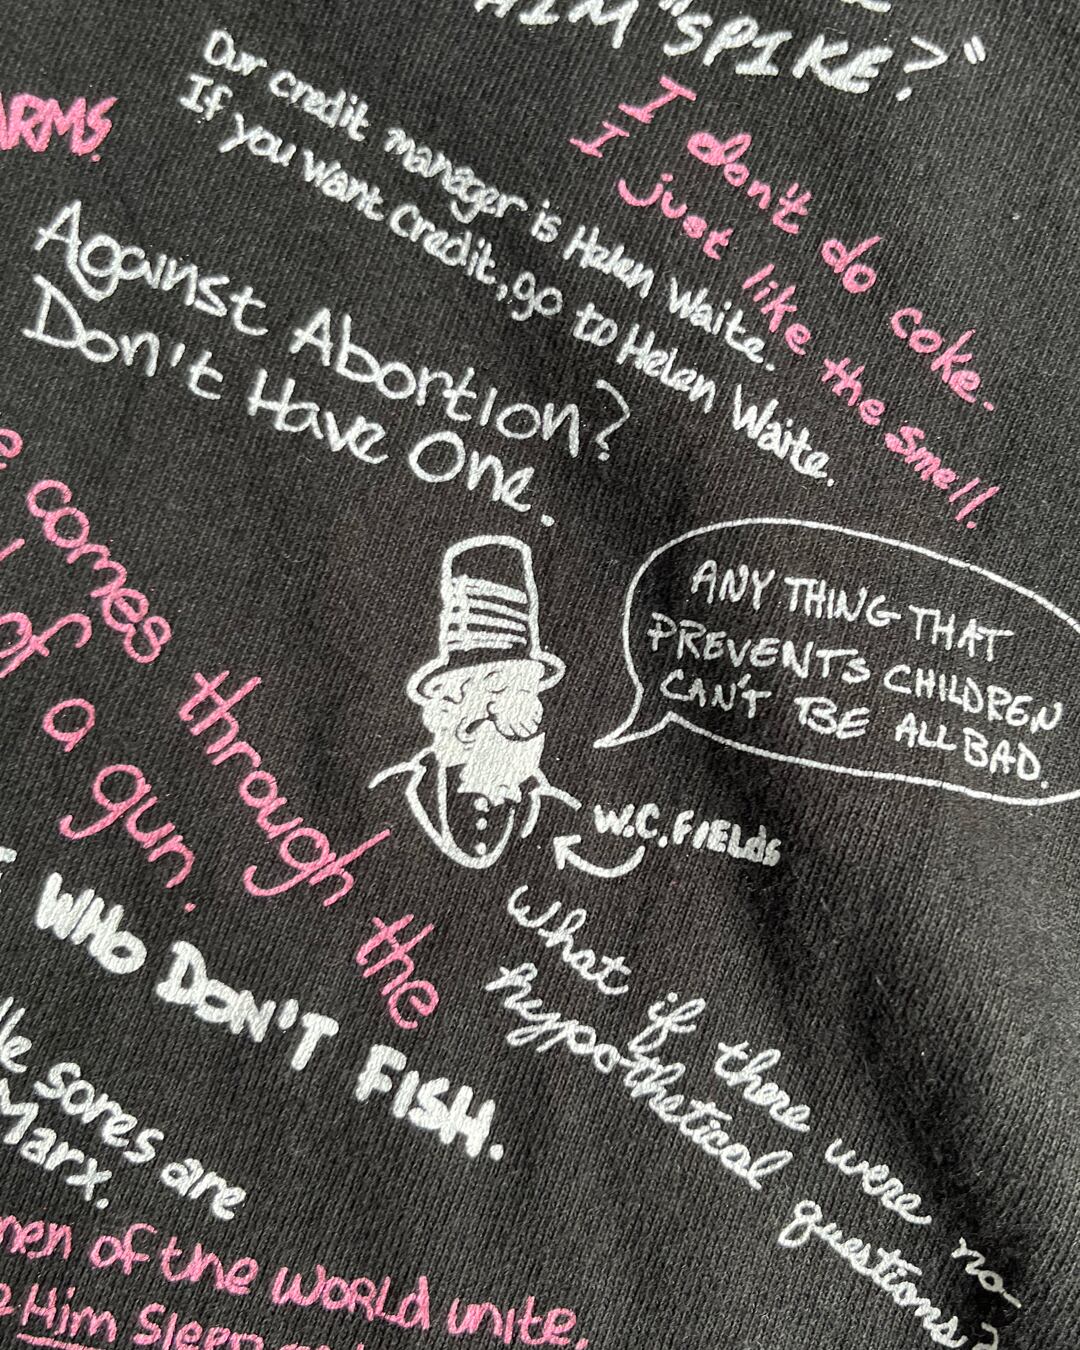 HIM "SPIKE?"
ARMS.
Our credit manager is Helen Waite.
If you want credit, go to Helen Waite.
I don't do coke.
I just like the smell.
Against Abortion?
Don't Have One.
comes through the
of a gun.
ANYTHING THAT
PREVENTS CHILDREN
CAN'T BE ALL BAD.
W.C. FIELDS
What if there were no
hypothetical questions?
WHO DON'T FISH.
sores are
Marx.
men of the world unite.
Him Sleep